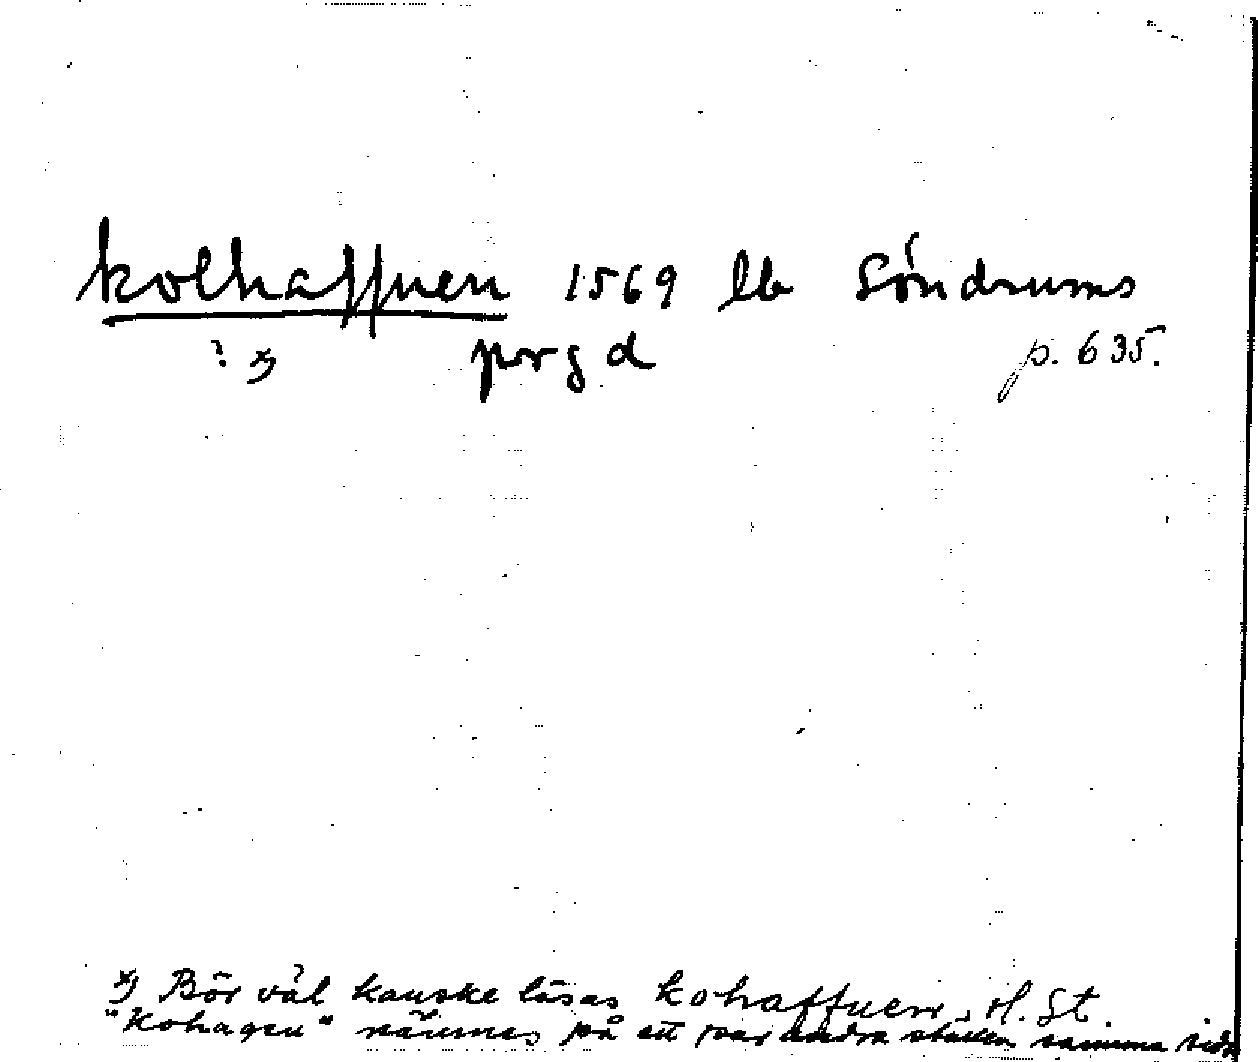 kolhaffuen 1569 lb Söndrums
? *) prgd p. 635.
*) Bör väl kanske läsas kohaffuen. H. St.
"Kohagen" nämnes på ett par andra ställen samma sida